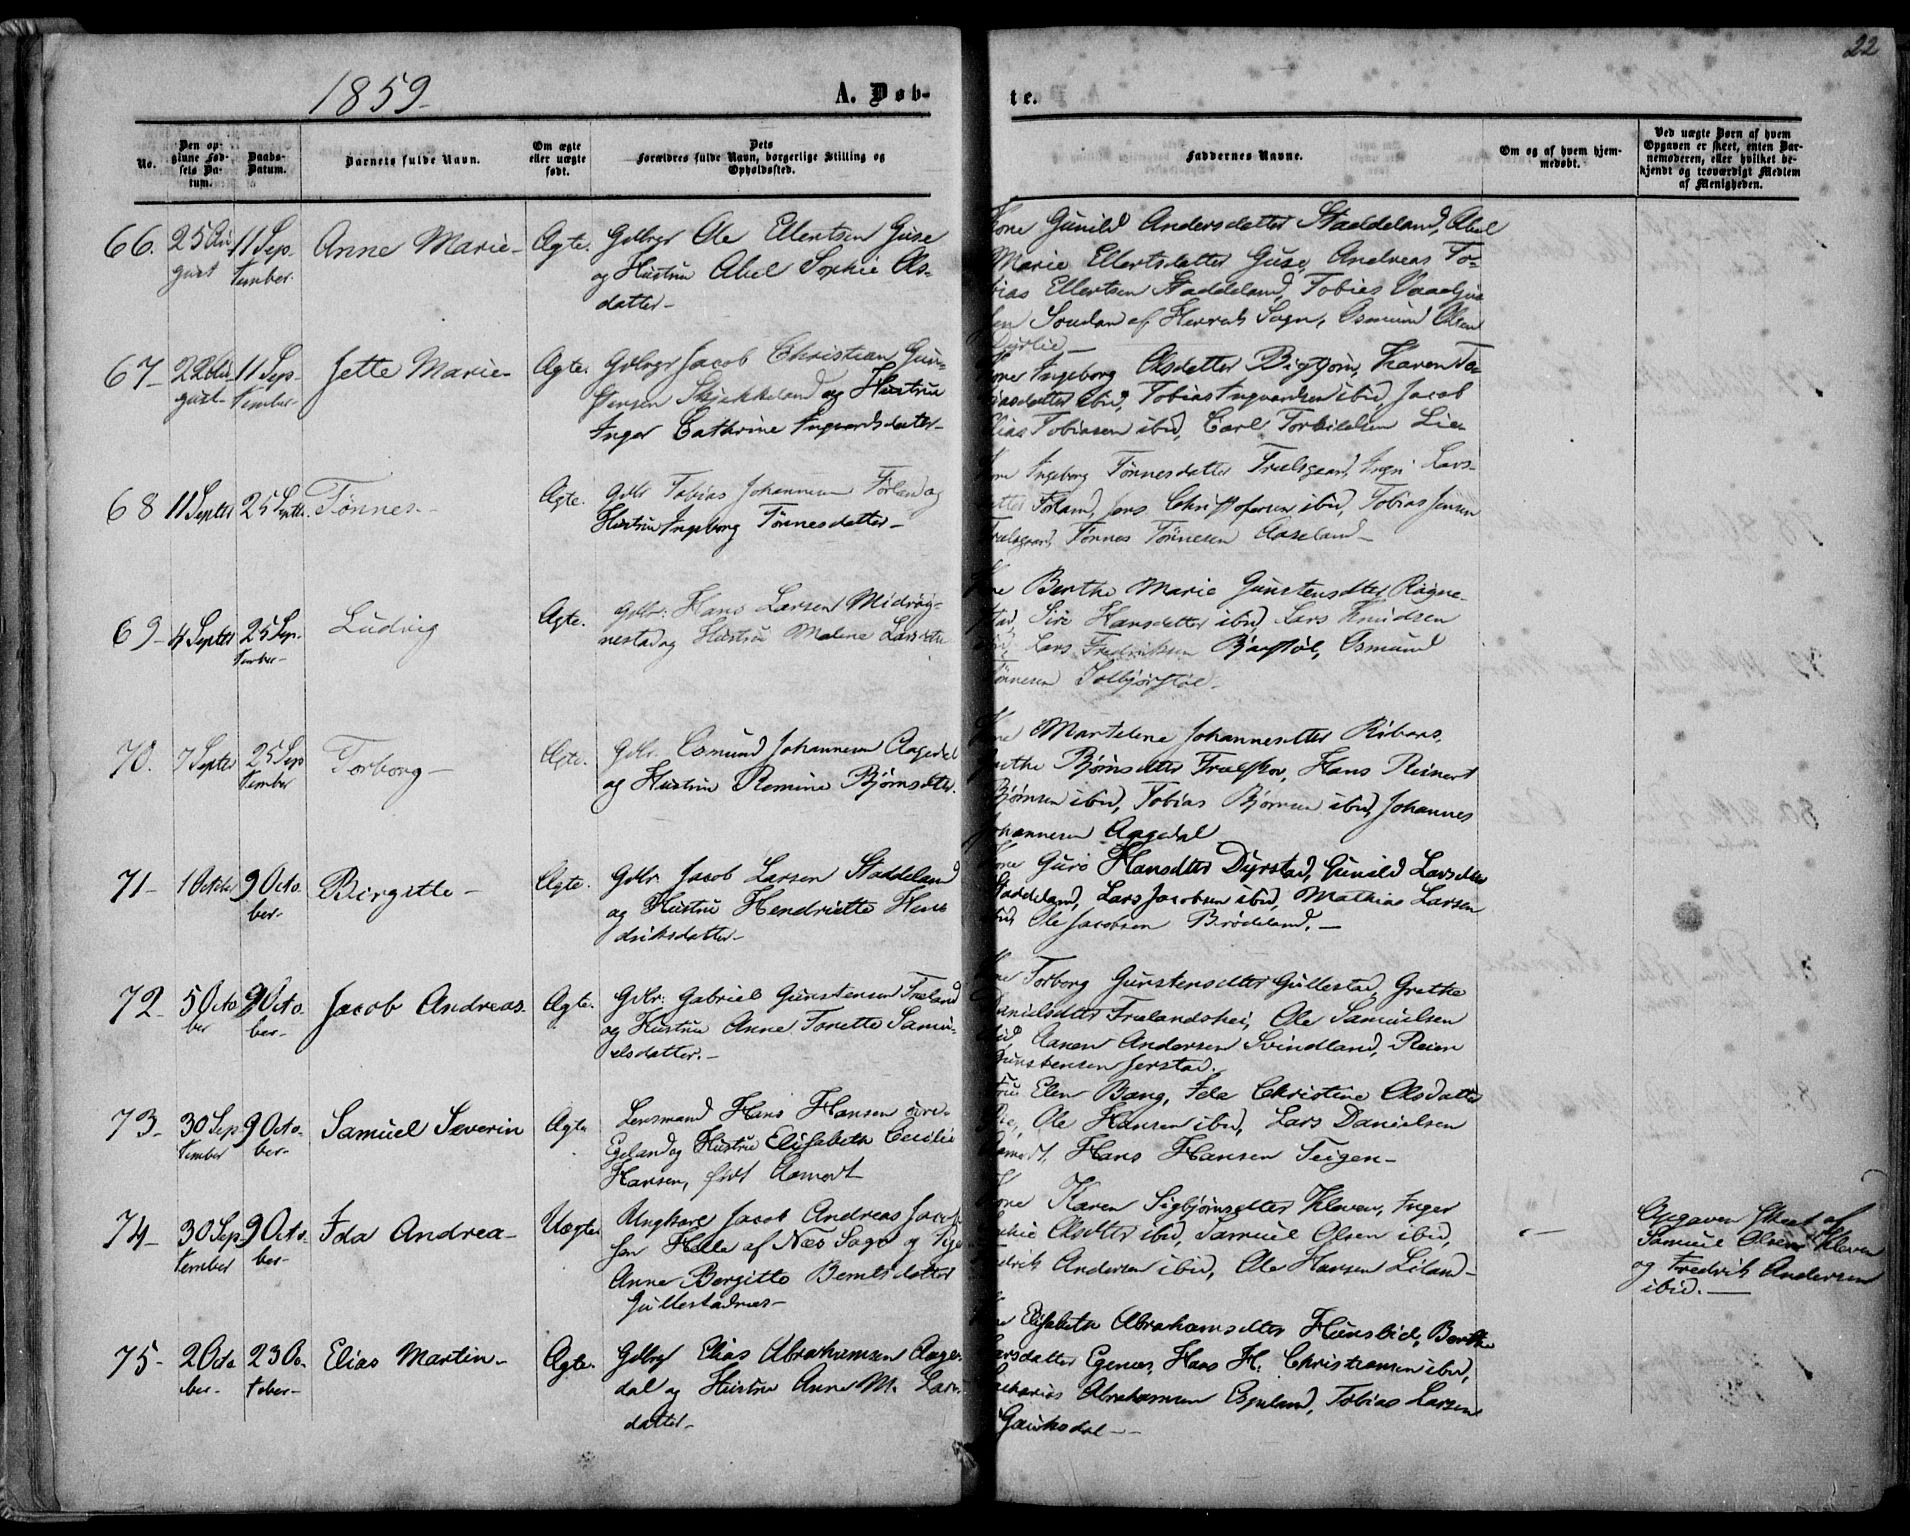 22
1859
A. Døb-
te.
No.
Den op-
givne Fød-
sels Da-
tum.
Daabs-
Datum.
Barnets fulde Navn.
Om ægte
eller uægte
født.
Dets
Forældres fulde Navn, borgerlige Stilling og
Opholdssted.
Faddernes Navne.
Om og af hvem hjem-
medøbt.
Ved uægte Børn af hvem
Opgaven er skeet, enten Bar-
nemoderen, eller hvilket be-
kjendt og troværdigt Medlem
af Menigheden.
66. 25 Au- 11 Sep- Anne Marie- Ægte. Gdbrgr Ole Ellertsen Guse
gust tember. og Hustru Abel Sophie Ols-
datter-
Kone Gunild Andersdatter Staddeland, Abel
Marie Ellertsdatter Guse, Andreas To-
bias Ellertsen Staddeland, Tobias
af Sogn, Osmund Olsen
67- 22 Au- 11 Sep- Jette Marie- Ægte. Gdbrgr Jacob Christian Gun-
gust- tember- og Hustru
Inger Cathrine Ingvardsdatter-
Kone Ingeborg Olsdatter Karen To-
biasdatter ibid, Tobias Ingvardsen ibid, Jacob
Elias Tobiasen ibid, Carl Torkildsen Lie-
68 11 Septbr 25 Septbr. Tønnes- Ægte. Gdbr Tobias Johannesen Følland og
Hustru Ingeborg Tønnesdatter-
Kone Ingeborg Tønnesdatter Trælsgaard, Lars-
datter Jens Christofersen ibid, Tobias Jensen
Trælsgaard, Tønnes Tønnesen Aaseland-
69- 4 Septbr 25 Sep- Ludvig Ægte. Gdbr: Hans Larsen Midrøg-
tember- nestad og Hustru Malene Larsdtr
Kone Berthe Marie Gunstensdtter Røgne-
stad, Siri Hansdatter ibid, Lars Knudsen
ibid, Lars Fredriksen Osmund
Tønnesen
70. 7 Septbr 25 Sep- Torborg- Ægte. Gdbr. Osmund Johannesen Aagedal
tember og Hustru Romine Bjørnsdtter.
Kone Martelene Johannesdtter Ribaas,
Grethe Bjørnsdtter Hans Reinert
Bjørnsen ibid, Tobias Bjørnsen ibid, Johannes
Johannesen Aagedal
71- 1 October 9 Octo- Birgitte- Ægte. Gdbr. Jacob Larsen Staddeland
ber- og Hustru Hendriette Hen-
driksdatter-
Kone Guro Hansdtter Dyrstad, Gunild Larsdtter
Staddeland, Lars Jacobsen ibid, Mathias Larsen
ibid, Ole Jacobsen Brødeland.-
72- 5 Octo- 9 Octo- Jacob Andreas- Ægte. Gdbr: Gabriel Gunstensen Træland
ber ber- og Hustru Anne Tonette Samu-
elsdatter.-
Kone Torborg Gunstensdtter Gullestad, Grethe
Danielsdtter Frelandshei, Ole Samuelsen
ibid, Aanen Andersen Svindland, Reier
Gunstensen Jerstad.
73- 30 Sep- 9 Octo- Samuel Severin Ægte Lensmand Hans Hansen Øvre-
tember ber- Egeland og Hustru Elisabeth Cecilie
Hansen, født Aamodt
Fru Elen Bang, Ida Christine Olsdatter
Lie, Ole Hansen ibid, Lars Danielsen
Aamodt, Hans Hansen Teigen-
74- 30 Sep- 9 Octo- Ida Andrea- Uægte. Ungkarl Jacob Andreas Jacob-
tember ber- sen Helle af Næs Sogn og Pige
Anne Bergitte Berntsdatter
Gullestadnæs-
Kone Karen Sigbjørnsdtter Kleven, Inger
Olsdtter ibid, Samuel Olsen ibid,
Fredrik Andersen ibid, Ole Hansen Liland-
-
Opgaven skeet af
Samuel Olsen Kleven
og Fredrik Andersen
ibid.-
75- 2 Octo- 23 Oc- Elias Martin- Ægte. Gdbrgr Elias Abrahamsen Aage-
ber- tober- dal og Hustru Anne M. Lars-
datter-
Kone Elisabeth Abrahamsdtter Hunslid, Berthe
Larsdatter Egenes, Hans H. Christiansen ibid,
Zacharias Abrahamsen Espeland, Tobias Larsen
Gauksdal-